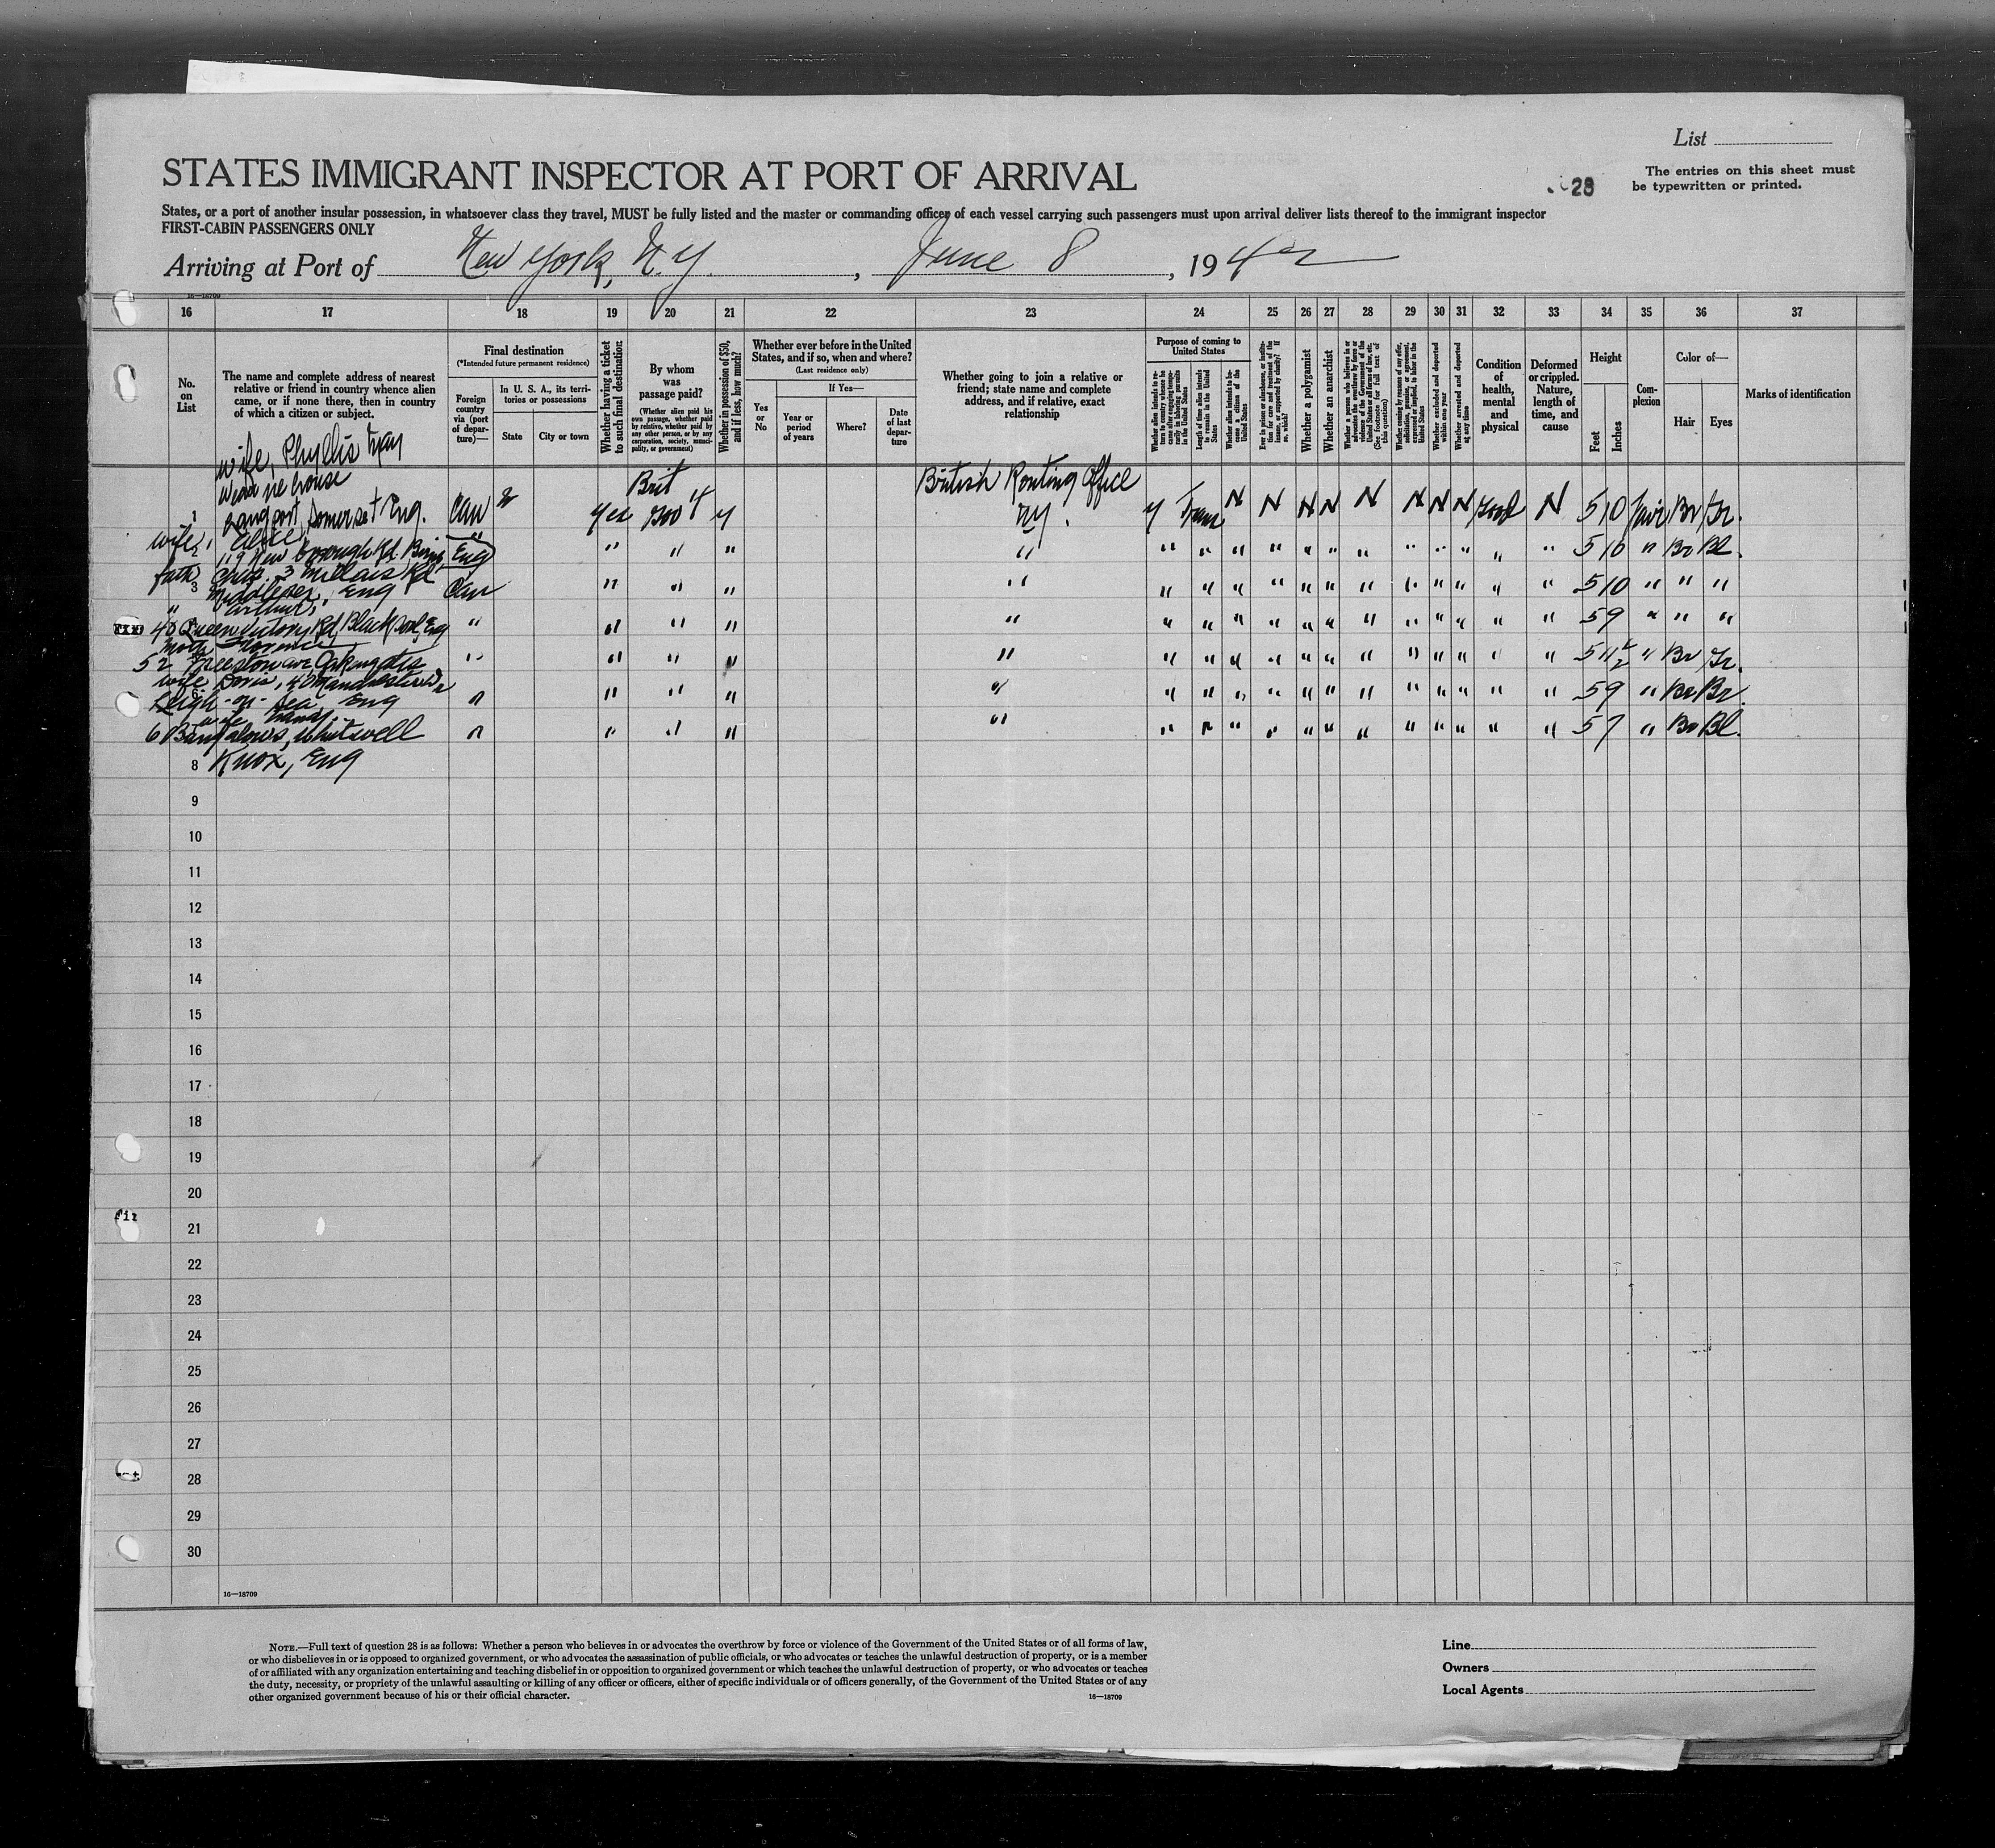 List
STATES IMMIGRANT INSPECTOR AT PORT OF ARRIVAL
28
The entries on this sheet must
be typewritten or printed.
States, or a port of another insular possession, in whatsoever class they travel, MUST be fully listed and the master or commanding officer of each vessel carrying such passengers must upon arrival deliver lists thereof to the immigrant inspector
FIRST-CABIN PASSENGERS ONLY
Arriving at Port of New York, N.Y., June 8, 1942
16—18709
16 17 18 19 20 21 22 23 24 25 26 27 28 29 30 31 32 33 34 35 36 37
No.
on
List
The name and complete address of nearest
relative or friend in country whence alien
came, or if none there, then in country
of which a citizen or subject.
Final destination
(*Intended future permanent residence)
Foreign
country
via (port
of depar-
ture)—
In U. S. A., its terri-
tories or possessions
State
City or town
Whether having a ticket
to such final destination
By whom
was
passage paid?
(Whether alien paid his
own passage, whether paid
by relative, whether paid by
any other person, or by any
corporation, society, munici-
pality, or government)
Whether in possession of $50,
and if less, how much?
Whether ever before in the United
States, and if so, when and where?
(Last residence only)
Yes
or
No
If Yes—
Year or
period
of years
Where?
Date
of last
depar-
ture
Whether going to join a relative or
friend; state name and complete
address, and if relative, exact
relationship
Purpose of coming to
United States
Whether alien intends to re-
turn to country whence he
came after engaging tempo-
rarily in laboring pursuits
in the United States
Length of time alien intends
to remain in the United
States
Whether alien intends to be-
come a citizen of the
United States
Ever in prison or almshouse, or institu-
tion for care and treatment of the
insane, or supported by charity? If
so, which?
Whether a polygamist
Whether an anarchist
Whether a person who believes in or
advocates the overthrow by force or
violence of the Government of the
United States or all forms of law, etc.
(See footnote for full text of
this question)
Whether coming by reason of any offer,
solicitation, promise, or agreement,
expressed or implied, to labor in the
United States
Whether excluded and deported
within one year
Whether arrested and deported
at any time
Condition
of
health,
mental
and
physical
Deformed
or crippled.
Nature,
length of
time, and
cause
Height
Feet
Inches
Com-
plexion
Color of—
Hair
Eyes
Marks of identification
wife, Phyllis
house
1 Langport, Somerset Eng. Can Yes Brit Gov't y British Routing Office NY. y Trans N N N N N N N N Good N 5 10 Fair Br Gr.
wife, Alice
2 119 New borough Rd. Eng " " " " " " " " " " " " " " " " 5 10 " Br Bl.
fath Chas. 3 Millais Rd
3 Middlesex, Eng Can " " " " " " " " " " " " " " " " 5 10 " " "
" Arthur,
40 Queen Victory Rd, Blackpool, Eng " " " " " " " " " " " " " " " " " 5 9 " " "
moth Florence
52 Freestone ave " " " " " " " " " " " " " " " " " 5 11 1/2 " Br Gr.
wife Doris, 40 Manchester
6 Leigh-on-Sea, Eng " " " " " " " " " " " " " " " " " 5 9 " Br Br.
wife
6 Bungalows, Whitwell " " " " " " " " " " " " " " " " " 5 7 " Br Bl.
8 Knox, Eng
9
10
11
12
13
14
15
16
17
18
19
20
21
22
23
24
25
26
27
28
29
30
16—18709
NOTE.—Full text of question 28 is as follows: Whether a person who believes in or advocates the overthrow by force or violence of the Government of the United States or of all forms of law,
or who disbelieves in or is opposed to organized government, or who advocates the assassination of public officials, or who advocates or teaches the unlawful destruction of property, or is a member
of or affiliated with any organization entertaining and teaching disbelief in or opposition to organized government or which teaches the unlawful destruction of property, or who advocates or teaches
the duty, necessity, or propriety of the unlawful assaulting or killing of any officer or officers, either of specific individuals or of officers generally, of the Government of the United States or of any
other organized government because of his or their official character.
16—18709
Line
Owners
Local Agents